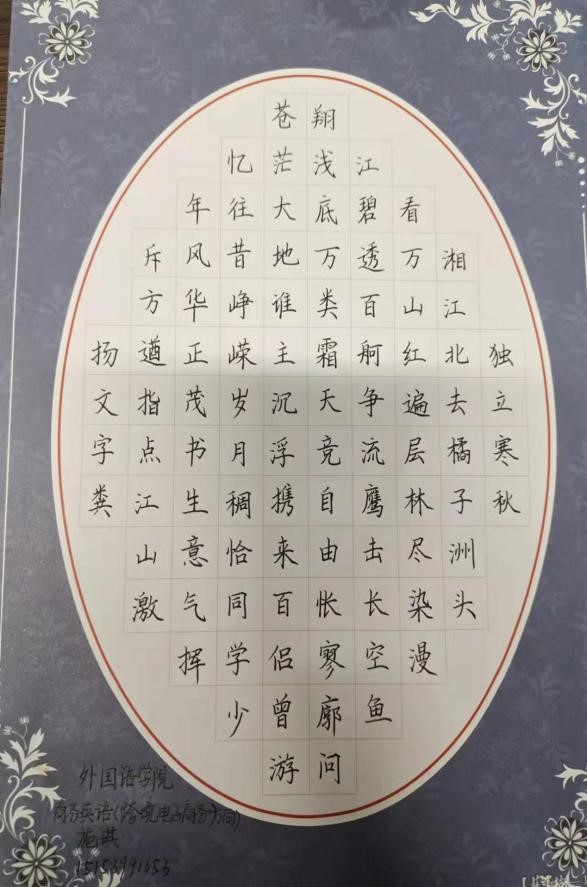 独立寒秋
湘江北去橘子洲头
看万山红遍层林尽染漫
江碧透百舸争流鹰击长空鱼
翔浅底万类霜天竞自由怅寥廓问
苍茫大地谁主沉浮携来百侣曾游
忆往昔峥嵘岁月稠恰同学少
年风华正茂书生意气挥
斥方遒指点江山激
扬文字粪
外国语学院
商务英语(跨境电子商务方向)
施琪
15153991653